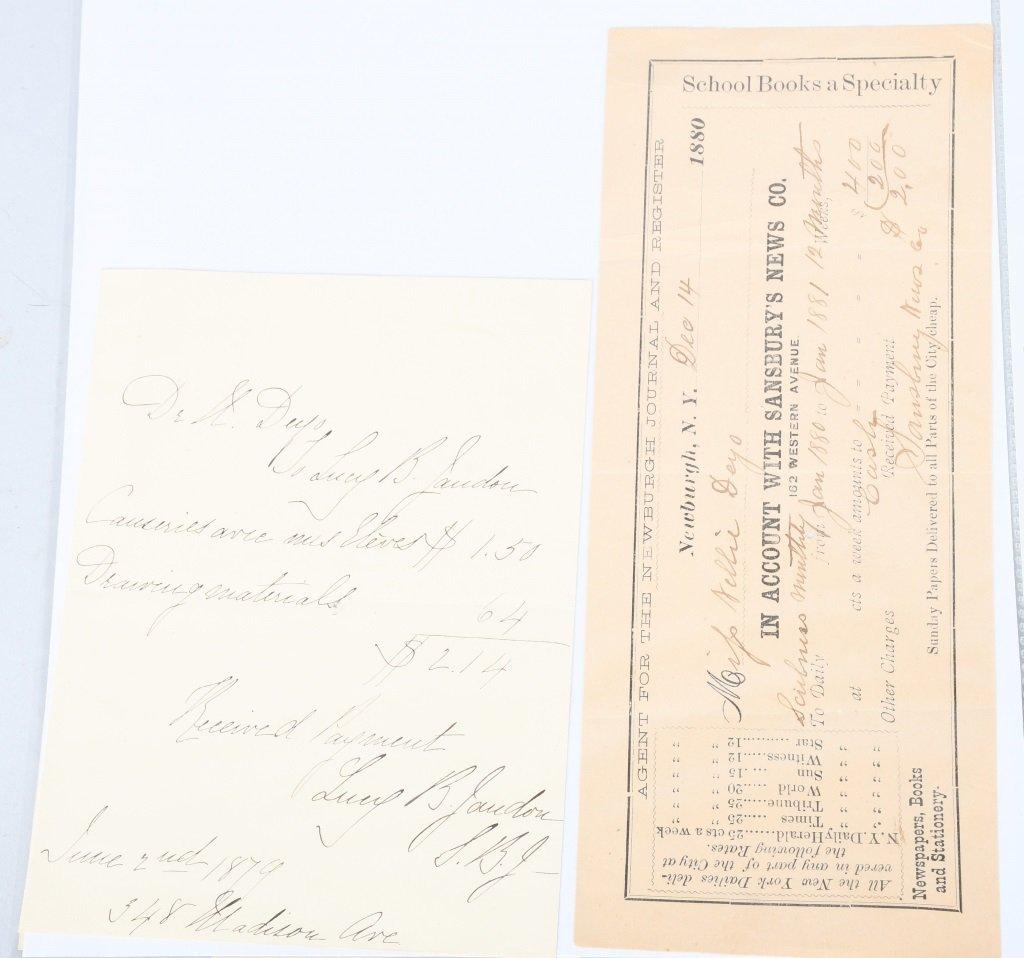 Dr N. Deyo
To Lucy B. Jandon
Causeries avec mes Elèves $ 1.50
Drawing materials 64
$ 2.14
Received Payment
Lucy B. Jandon
S. B. J
June 2nd 1879
348 Madison Ave
School Books a Specialty
AGENT FOR THE NEWBURGH JOURNAL AND REGISTER
Newburgh, N. Y. Dec 14 1880
Miss Nellie Deyo
IN ACCOUNT WITH SANSBURY'S NEWS CO.
162 WESTERN AVENUE.
Scribners Monthly
To Daily from Jan 1880 to Jan 1881 12 Months Weeks,
at cts a week amounts to = = = = = $ 400
Cash 200
Other Charges Received Payment $ 2.00
Sansbury News Co
Sunday Papers Delivered to all Parts of the City cheap.
All the New York Dailies deli-
vered in any part of the City at
the following Rates.
N.Y. Daily Herald......25 cts a week
Times ......25 " "
Tribune......25 " "
World ......20 " "
Sun ......15 " "
Witness......12 " "
Star ......12 " "
Newspapers, Books
and Stationery.